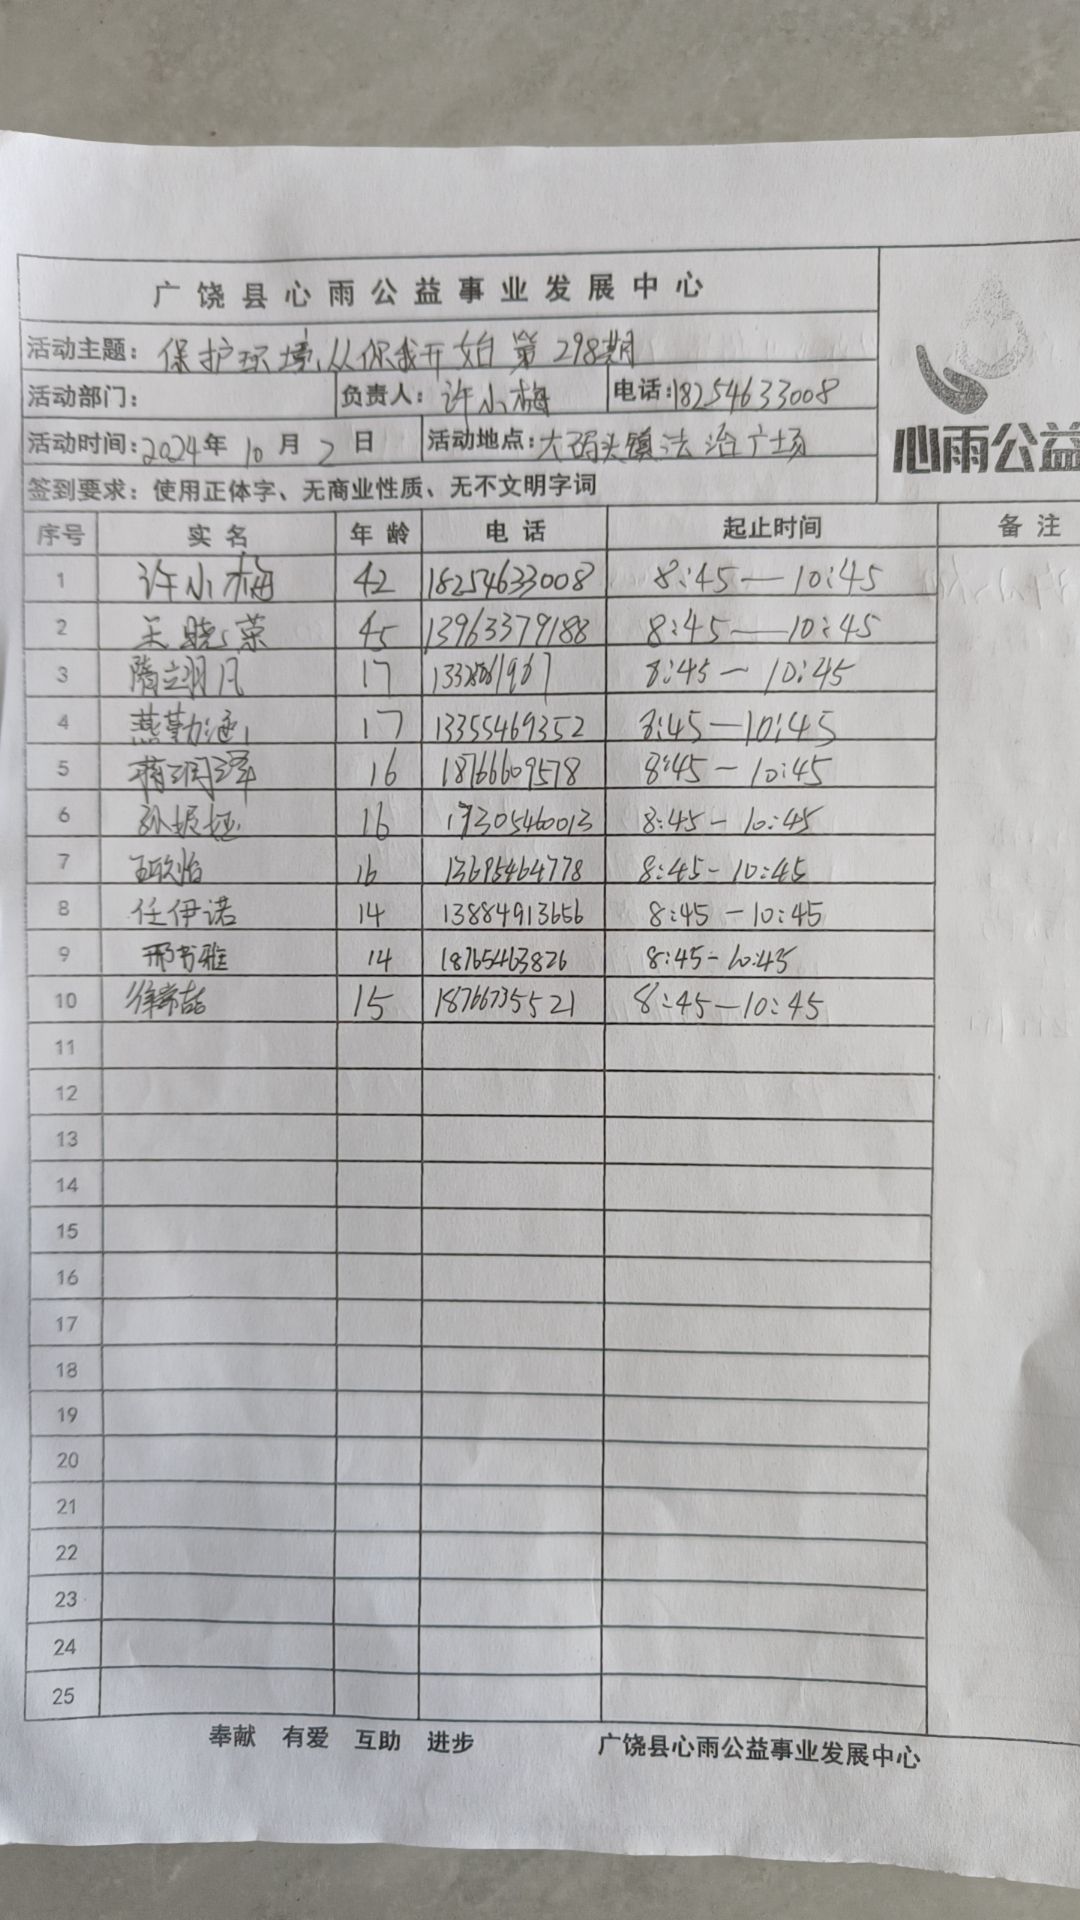 广饶县心雨公益事业发展中心
心雨公益
活动主题：保护环境，从你我开始第298期
活动部门： 负责人：许小梅 电话：18254633008
活动时间：2024年10月2日 活动地点：大码头镇法治广场
签到要求：使用正体字、无商业性质、无不文明字词
序号 实名 年龄 电话 起止时间 备注
1 许小梅 42 18254633008 8:45—10:45
2 王晓荣 45 13963379188 8:45—10:45
3 隋立羽凡 17 8:45—10:45
4 燕勤涵 17 13355469352 8:45—10:45
5 蒋润泽 16 18766609578 8:45—10:45
6 16 17305460013 8:45—10:45
7 王欣怡 16 13695464778 8:45-10:45
8 任伊诺 14 13884913656 8:45—10:45
9 邢书雅 14 18765463826 8:45-10:45
10 15 18766735521 8:45—10:45
11
12
13
14
15
16
17
18
19
20
21
22
23
24
25
奉献 有爱 互助 进步 广饶县心雨公益事业发展中心